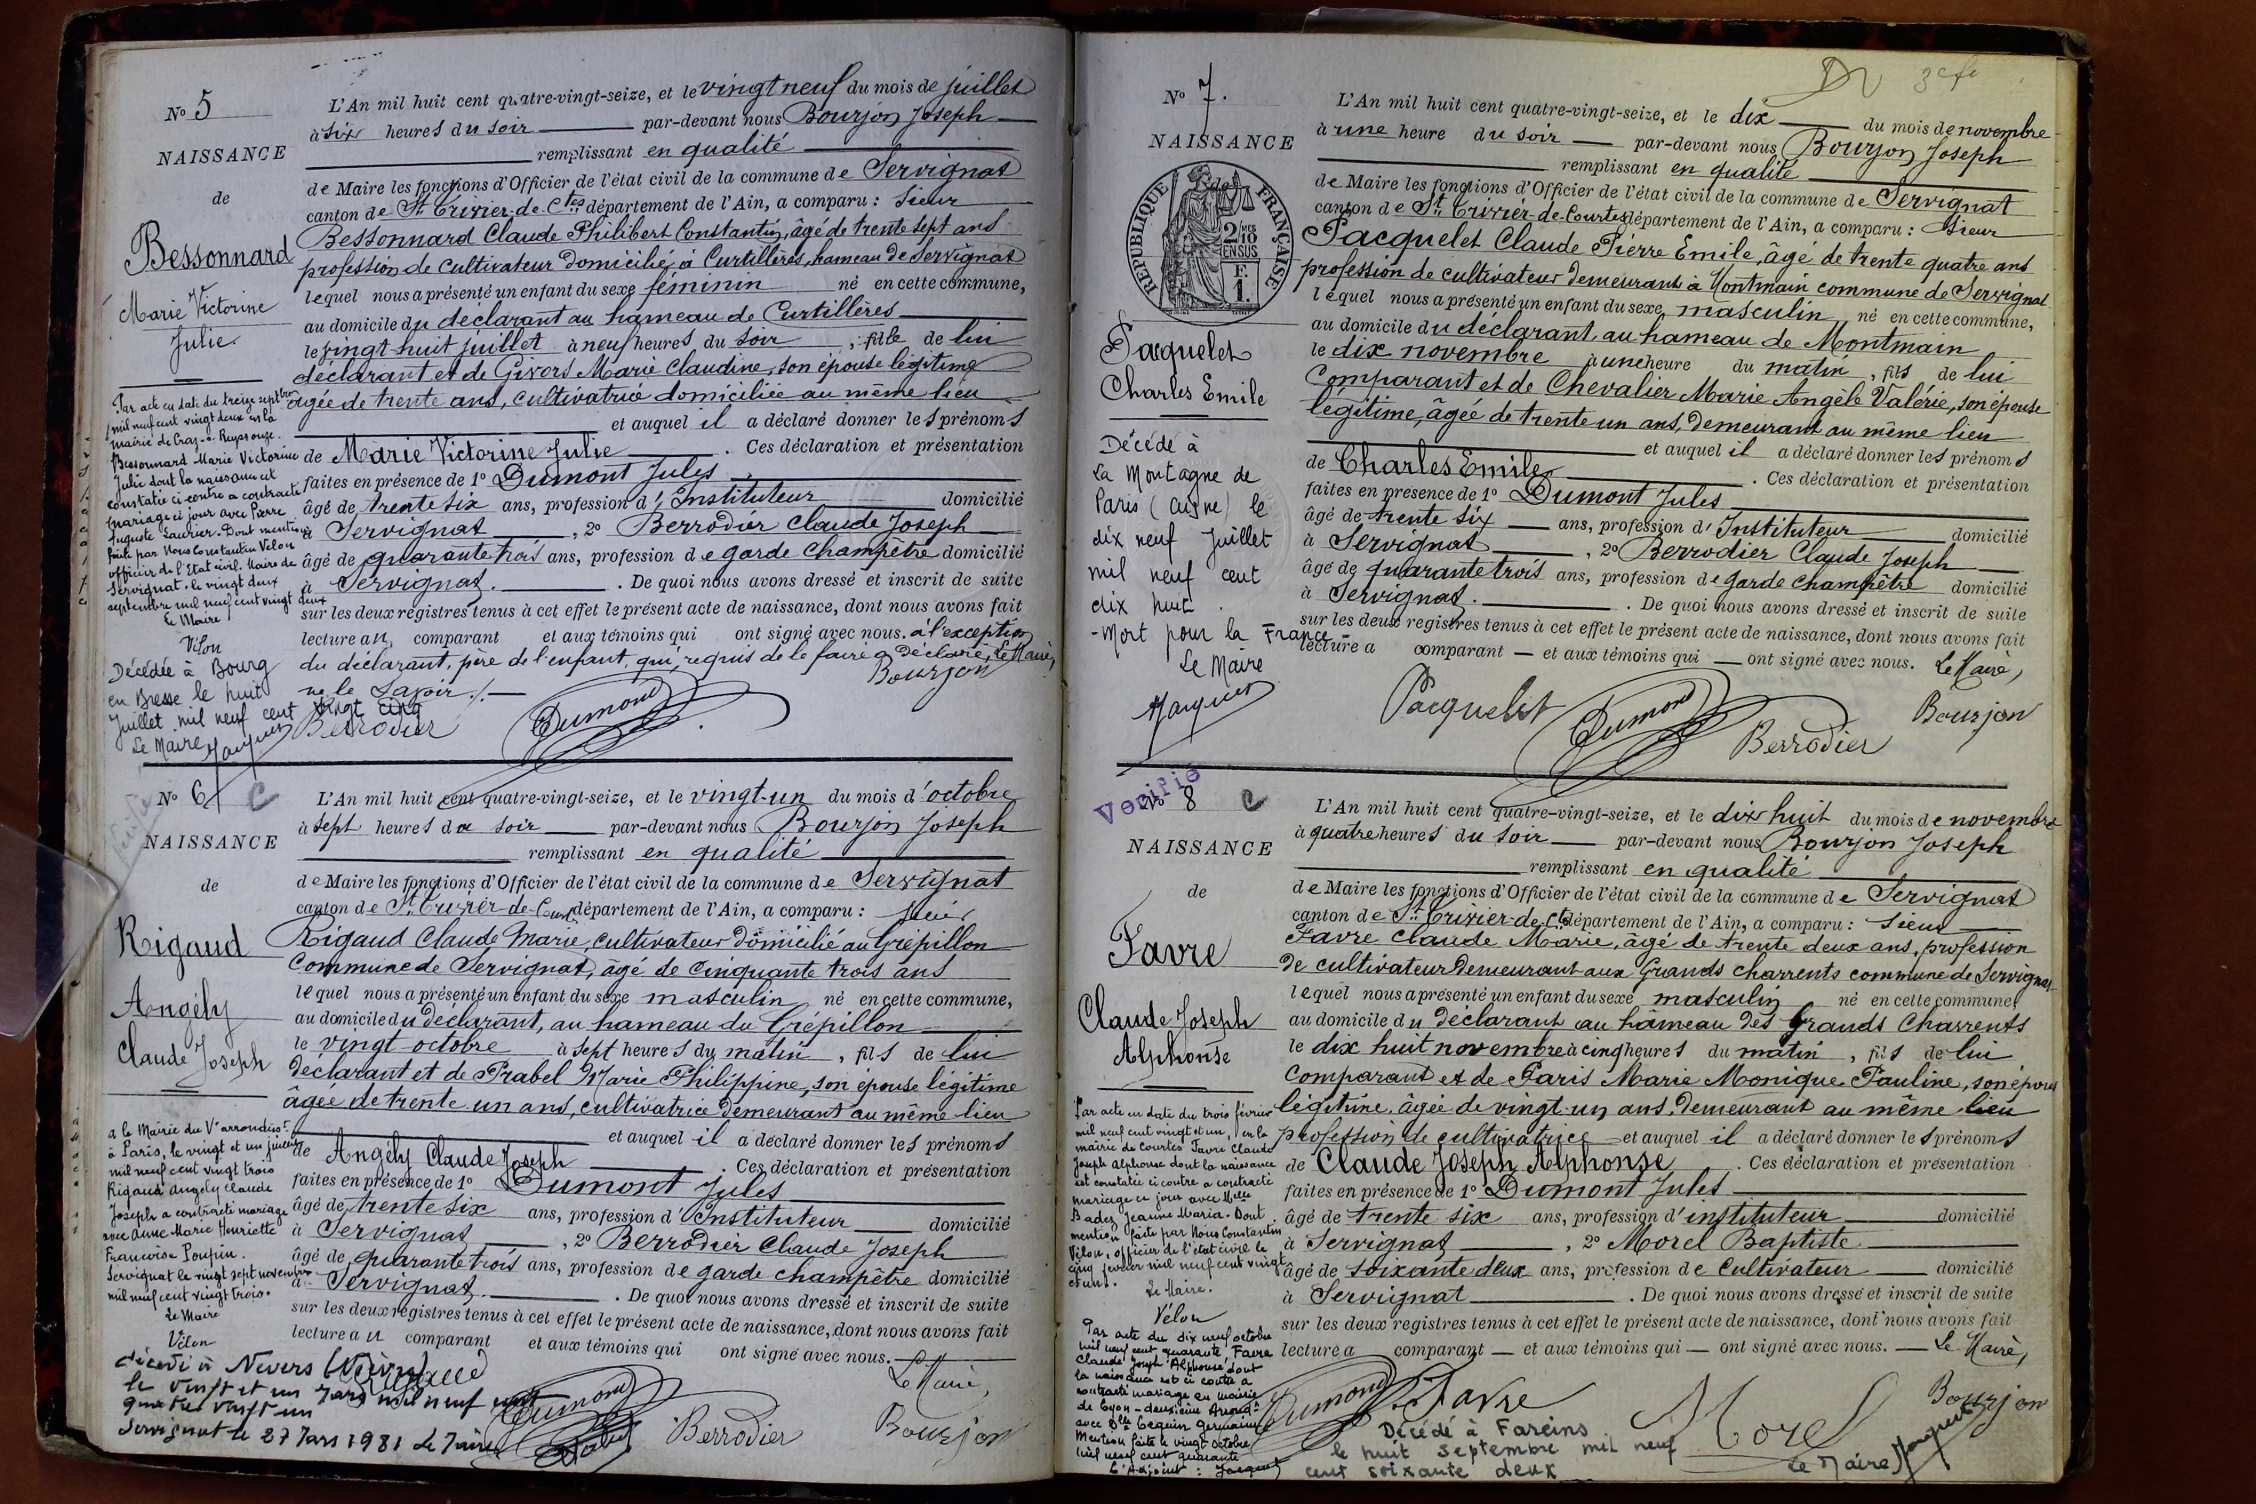 No 5
NAISSANCE
de
Bessonnard
Marie Victorine
Julie
L'An mil huit cent quatre-vingt-seize, et le vingt neuf du mois de juillet
à six heures du soir par-devant nous Bourjon Joseph
remplissant en qualité
de Maire les fonctions d'Officier de l'état civil de la commune de Servignat
canton de St Trivier-de-Ctes département de l'Ain, a comparu : Sieur
Bessonnard Claude Philibert Constantin, âgé de trente sept ans
profession de cultivateur domicilié à Curtillères, hameau de Servignat
lequel nous a présenté un enfant du sexe féminin né en cette commune,
au domicile du déclarant au hameau de Curtillères
le vingt huit juillet à neuf heures du soir, fille de lui
déclarant et de Givors Marie Claudine, son épouse légitime
âgée de trente ans, cultivatrice domiciliée au même lieu
et auquel il a déclaré donner les prénoms
de Marie Victorine Julie. Ces déclaration et présentation
faites en présence de 1º Dumont Jules
âgé de trente six ans, profession d'Instituteur domicilié
à Servignat, 2º Berrodier Claude Joseph
âgé de quarante trois ans, profession de garde champêtre domicilié
à Servignat. De quoi nous avons dressé et inscrit de suite
sur les deux registres tenus à cet effet le présent acte de naissance, dont nous avons fait
lecture au comparant et aux témoins qui ont signé avec nous. à l'exception
du déclarant, père de l'enfant, qui, requis de le faire a déclaré, Le Maire,
ne le savoir ./.
Bourjon
Berrodier
Dumont
Par acte en date du treize septbre
mil neuf cent vingt deux en la
mairie de Cras-s-Reyssouze.
Bessonnard Marie Victorine
Julie dont la naissance est
constatée ci contre a contracté
mariage ce jour avec Pierre
Auguste Laurier. Dont mention
faite par Nous Constantin Vélon
officier de l'Etat civil. Maire de
Servignat. le vingt deux
septembre mil neuf cent vingt deux
Le Maire
Vélon
Décédée à Bourg
en Bresse le huit
Juillet mil neuf cent vingt cinq
Le Maire
No 6
C
NAISSANCE
de
Rigaud
Angély
Claude Joseph
L'An mil huit cent quatre-vingt-seize, et le vingt-un du mois d'octobre
à sept heures du soir par-devant nous Bourjon Joseph
remplissant en qualité
de Maire les fonctions d'Officier de l'état civil de la commune de Servignat
canton de St Trivier-de-Courtes département de l'Ain, a comparu : Sieur
Rigaud Claude Marie, cultivateur domicilié au Grépillon
Commune de Servignat, âgé de cinquante trois ans
lequel nous a présenté un enfant du sexe masculin né en cette commune,
au domicile du déclarant, au hameau du Grépillon
le vingt octobre à sept heures du matin, fils de lui
déclarant et de Prabel Marie Philippine, son épouse légitime
âgée de trente un ans, cultivatrice demeurant au même lieu
et auquel il a déclaré donner les prénoms
de Angély Claude Joseph. Ces déclaration et présentation
faites en présence de 1º Dumont Jules
âgé de trente six ans, profession d'Instituteur domicilié
à Servignat, 2º Berrodier Claude Joseph
âgé de quarante trois ans, profession de garde champêtre domicilié
à Servignat. De quoi nous avons dressé et inscrit de suite
sur les deux registres tenus à cet effet le présent acte de naissance, dont nous avons fait
lecture au comparant et aux témoins qui ont signé avec nous.
Le Maire,
Dumont
Berrodier
Bourjon
a la Mairie du Ve arrondisst
à Paris, le vingt et un
mil neuf cent vingt trois
Rigaud Angély Claude
Joseph a contracté mariage
avec Anne Marie Henriette
Francoise Poupin.
Servignat le vingt sept novembre
mil neuf cent vingt trois.
Le Maire
Vélon
décédé à Nevers (Nièvre)
le vingt et un Mars mil neuf cent
quatre vingt un
Servignat le 27 Mars 1981 Le Maire
3e f
No 7.
NAISSANCE
de
RÉPUBLIQUE FRANÇAISE
2 MES 10
EN SUS
F.
1.
Pacquelet
Charles Emile
L'An mil huit cent quatre-vingt-seize, et le dix du mois de novembre
à une heure du soir par-devant nous Bourjon Joseph
remplissant en qualité
de Maire les fonctions d'Officier de l'état civil de la commune de Servignat
canton de St Trivier-de-Courtes département de l'Ain, a comparu : Sieur
Pacquelet Claude Pierre Emile, âgé de trente quatre ans
profession de cultivateur demeurant à Montmain commune de Servignat
lequel nous a présenté un enfant du sexe masculin né en cette commune,
au domicile du déclarant, au hameau de Montmain
le dix novembre à une heure du matin, fils de lui
comparant et de Chevalier Marie Angèle Valérie, son épouse
légitime, âgée de trente un ans, demeurant au même lieu
et auquel il a déclaré donner les prénoms
de Charles Emile. Ces déclaration et présentation
faites en présence de 1º Dumont Jules
âgé de trente six ans, profession d'Instituteur domicilié
à Servignat, 2º Berrodier Claude Joseph
âgé de quarante trois ans, profession de garde champêtre domicilié
à Servignat. De quoi nous avons dressé et inscrit de suite
sur les deux registres tenus à cet effet le présent acte de naissance, dont nous avons fait
lecture a comparant — et aux témoins qui — ont signé avec nous. Le Maire,
Pacquelet
Dumont
Berrodier
Bourjon
Décédé à
La Montagne de
Paris (Aisne) le
dix neuf Juillet
mil neuf cent
dix huit.
- Mort pour la France -
Le Maire
Verifié
No 8
C
NAISSANCE
de
Favre
Claude Joseph
Alphonse
L'An mil huit cent quatre-vingt-seize, et le dix huit du mois de novembre
à quatre heures du soir par-devant nous Bourjon Joseph
remplissant en qualité
de Maire les fonctions d'Officier de l'état civil de la commune de Servignat
canton de St Trivier-de-Ctes département de l'Ain, a comparu : Sieur
Favre Claude Marie, âgé de trente deux ans, profession
de cultivateur demeurant aux Grands Charrents commune de Servignat
lequel nous a présenté un enfant du sexe masculin né en cette commune,
au domicile du déclarant au hâmeau des Grands Charrents
le dix huit novembre à cinq heures du matin, fils de lui
comparant et de Paris Marie Monique Pauline, son épouse
légitime, âgée de vingt-un ans, demeurant au même lieu
profession de cultivatrice et auquel il a déclaré donner les prénoms
de Claude Joseph Alphonse. Ces déclaration et présentation
faites en présence de 1º Dumont Jules
âgé de trente six ans, profession d'instituteur domicilié
à Servignat, 2º Morel Baptiste
âgé de soixante deux ans, profession de cultivateur domicilié
à Servignat. De quoi nous avons dressé et inscrit de suite
sur les deux registres tenus à cet effet le présent acte de naissance, dont nous avons fait
lecture a comparant — et aux témoins qui — ont signé avec nous. — Le Maire,
Dumont
Favre
Morel
Bourjon
Par acte en date du trois février
mil neuf cent vingt et un, en la
mairie de Courtes Favre Claude
Joseph Alphonse dont la naissance
est constatée ci contre a contracté
mariage ce jour avec Melle
Badez Jeanne Maria. Dont
mention faite par Nous Constantin
Vélon, officier de l'état civil le
cinq février mil neuf cent vingt
et un.
Le Maire.
Vélon
Par acte du dix neuf octobre
mil neuf cent quarante, Favre
Claude Joseph Alphonse dont
la naissance est ci contre a
contracté mariage en mairie
de Lyon - deuxième Arrondt
avec Dlle Lequin Germaine
Mention faite le vingt octobre
mil neuf cent quarante
L'Adjoint :
Décédé à Fareins
le huit Septembre mil neuf
cent soixante deux
Le Maire